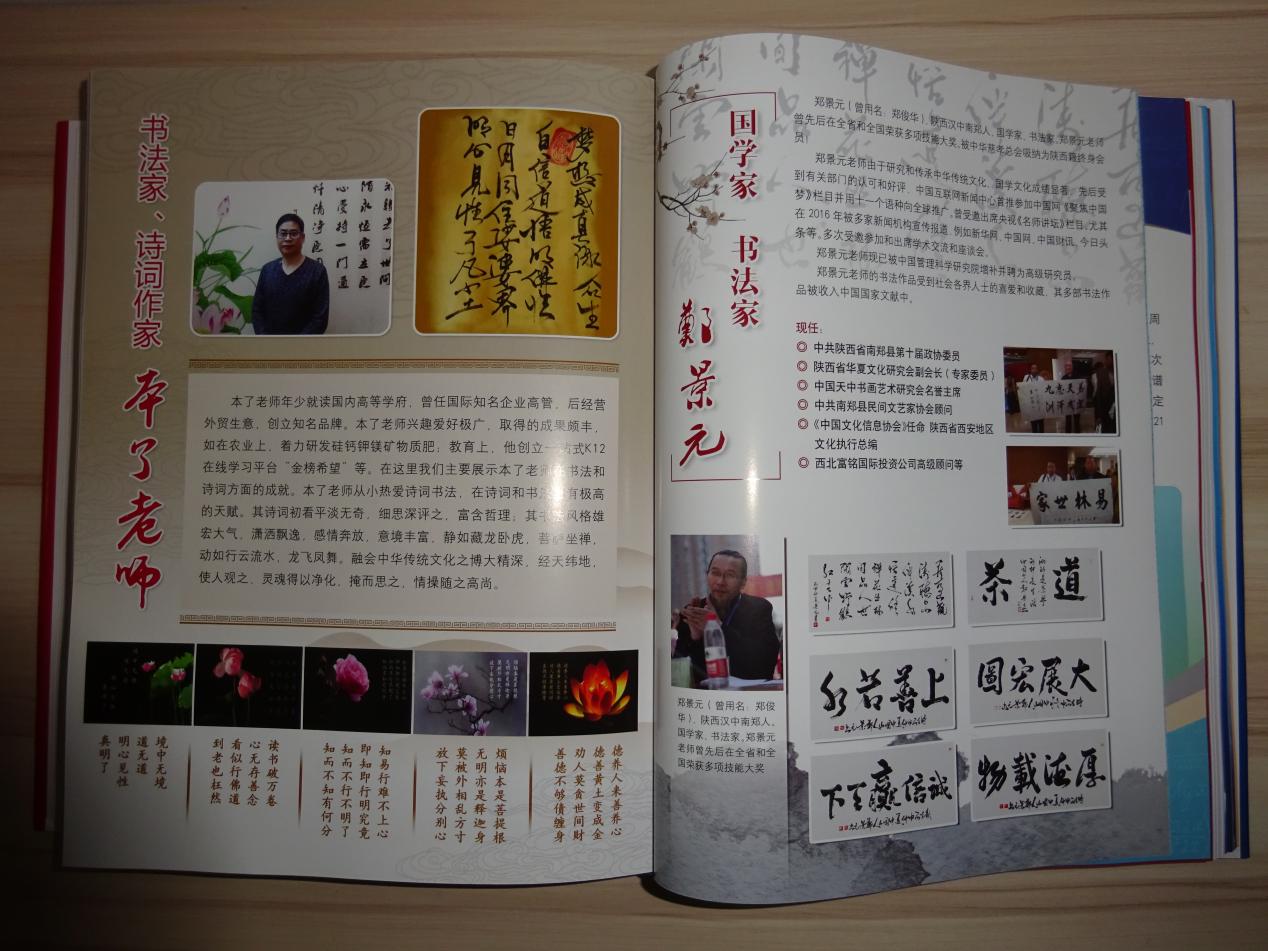 书法家、诗词作家
本了老师
本了老师年少就读国内高等学府，曾任国际知名企业高管，后经营
外贸生意，创立知名品牌。本了老师兴趣爱好极广，取得的成果颇丰，
如在农业上，着力研发硅钙钾镁矿物质肥；教育上，他创立一站式K12
在线学习平台“金榜希望”等。在这里我们主要展示本了老师在书法和
诗词方面的成就。本了老师从小热爱诗词书法，在诗词和书法上有极高
的天赋。其诗词初看平淡无奇，细思深评之，富含哲理；其书法风格雄
宏大气，潇洒飘逸，感情奔放，意境丰富，静如藏龙卧虎，菩萨坐禅，
动如行云流水，龙飞凤舞。融会中华传统文化之博大精深，经天纬地，
使人观之，灵魂得以净化，掩而思之，情操随之高尚。
境中无境
道无道
明心见性
真明了
读书破万卷
心无存善念
看似行佛道
到老也枉然
知易行难不上心
即知即行明究竟
知而不行不明了
知而不知有何分
烦恼本是菩提根
无明亦是释迦身
莫被外相乱方寸
放下妄执分别心
德养人来善养心
德善黄土变成金
劝人莫贪世间财
善德不够债缠身
国学家 书法家
郑景元
郑景元（曾用名：郑俊华），陕西汉中南郑人，国学家、书法家，郑景元老师
曾先后在全省和全国荣获多项技能大奖，被中华慈孝总会吸纳为陕西籍终身会
员！
郑景元老师由于研究和传承中华传统文化、国学文化成绩显著，先后受
到有关部门的认可和好评，中国互联网新闻中心首推参加中国网《聚焦中国
梦》栏目并用十一个语种向全球推广，曾受邀出席央视《名师讲坛》栏目，尤其
在 2016 年被多家新闻机构宣传报道，例如新华网、中国网、中国财讯、今日头
条等。多次受邀参加和出席学术交流和座谈会。
郑景元老师现已被中国管理科学研究院增补并聘为高级研究员。
郑景元老师的书法作品受到社会各界人士的喜爱和收藏，其多部书法作
品被收入中国国家文献中。
现任：
◎ 中共陕西省南郑县第十届政协委员
◎ 陕西省华夏文化研究会副会长（专家委员）
◎ 中国天中书画艺术研究会名誉主席
◎ 中共南郑县民间文艺家协会顾问
◎ 《中国文化信息协会》任命 陕西省西安地区
文化执行总编
◎ 西北富铭国际投资公司高级顾问等
家世林易
郑景元（曾用名：郑俊
华），陕西汉中南郑人，
国学家、书法家，郑景元
老师曾先后在全省和全
国荣获多项技能大奖
茶道
水若善上
圖宏展大
下天赢信诚
物載德厚
周
次
谱
定
21